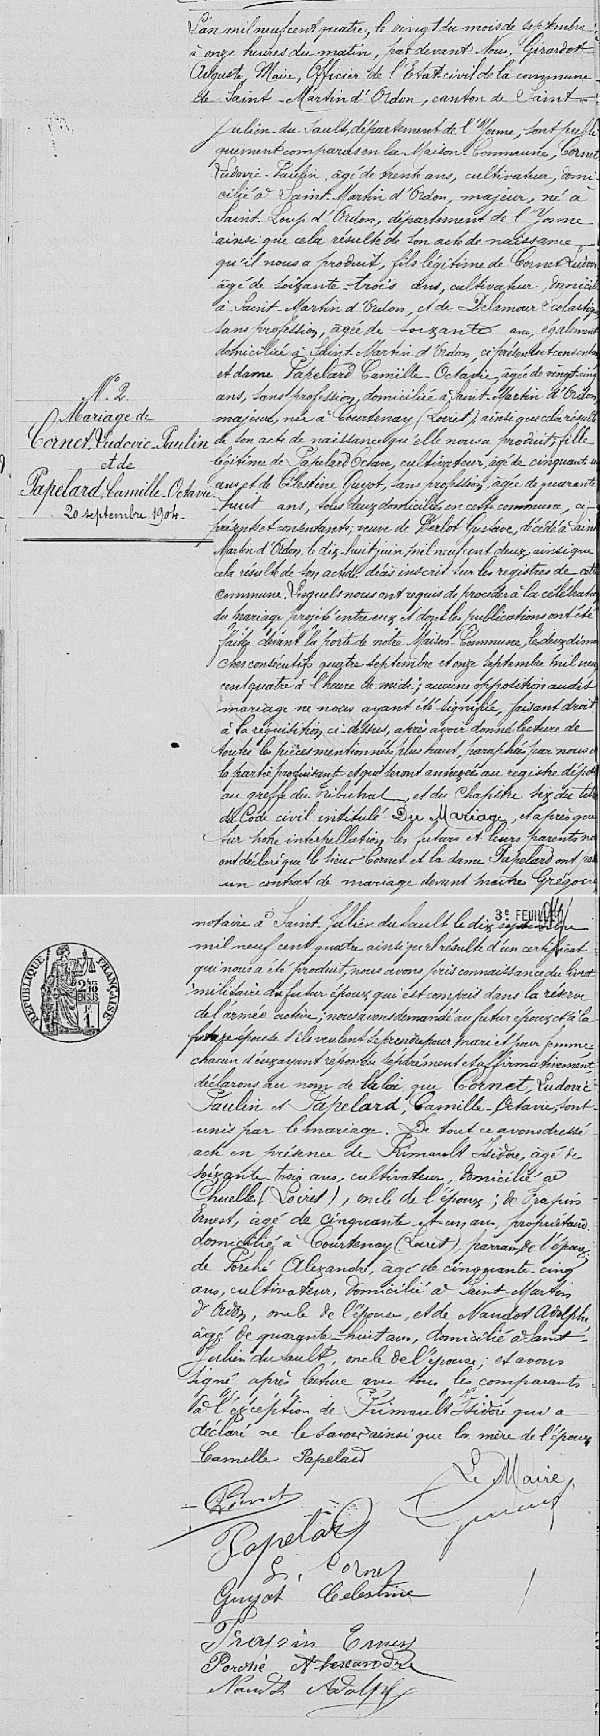 L'an mil neuf cent quatre, le vingt du mois de septembre
à onze heures du matin, par devant Nous, Girardot
Auguste, Maire, Officier de l'Etat civil de la commune
de Saint-Martin d'Ordon, canton de Saint-
Julien-du-Sault, département de l'Yonne, sont publi
quement comparus en la Maison Commune, Cornet
Ludovic-Paulin, âgé de trente ans, cultivateur, domi
cilié à Saint-Martin d'Ordon, majeur, né à
Saint-Loup d'Ordon, département de l'Yonne
ainsi que cela résulte de son acte de naissance
qu'il nous a produit, fils légitime de Cornet Ludovic
âgé de soixante-trois ans, cultivateur, domicilié
à Saint-Martin d'Ordon, et de Delamour Scolastique
sans profession, âgée de soixante ans, également
domiciliée à Saint-Martin d'Ordon, ci présents et consentants
et dame Papelard Camille-Octavie, âgée de vingt cinq
ans, sans profession, domiciliée à Saint-Martin d'Ordon
majeure, née à Courtenay (Loiret), ainsi que cela résulte
de son acte de naissance qu'elle nous a produit, fille
légitime de Papelard Octave, cultivateur, âgé de cinquante
ans et de Célestine Guyot, sans profession, âgée de quarante
huit ans, tous deux domiciliés en cette commune, ci-
présents et consentants; veuve de Perlot Gustave, décédé à Saint
Martin d'Ordon le dix-huit juin mil neuf cent deux, ainsi que
cela résulte de son acte de décès inscrit sur les registres de cette
commune. Lesquels nous ont requis de procéder à la célébration
du mariage projeté entre eux et dont les publications ont été
faites devant la porte de notre Maison Commune, les deux diman
ches consécutifs quatre septembre et onze septembre mil neuf
cent quatre à l'heure de midi; aucune opposition audit
mariage ne nous ayant été signifiée, faisant droit
à la réquisition ci-dessus, après avoir donné lecture de
toutes les pièces mentionnées plus haut, paraphées par nous et
la partie produisant et qui seront annexées au registre déposé
au greffe du Tribunal, et du chapitre six du titre
du Code civil intitulé Du Mariage, et après que
sur notre interpellation, les futurs et leurs parents nous
ont déclaré que le sieur Cornet et la dame Papelard ont passé
un contrat de mariage devant maître Grégoire
N° 2.
Mariage de
Cornet, Ludovic Paulin
et de
Papelard, Camille-Octavie
20 septembre 1904.
3e FEUILLET
notaire à Saint Julien du Sault le dix septembre
mil neuf cent quatre ainsi qu'il résulte d'un certificat
qui nous a été produit, nous avons pris connaissance du livret
militaire du futur époux qui est compris dans la réserve
de l'armée active; nous avons demandé au futur époux et à la
future épouse s'ils veulent se prendre pour mari et pour femme
chacun d'eux ayant répondu séparément et affirmativement,
déclarons au nom de la loi que Cornet, Ludovic
Paulin et Papelard, Camille-Octavie, sont
unis par le mariage. De tout ce avons dressé
acte en présence de Primault Isidore, âgé de
soixante trois ans, cultivateur, domicilié à
Chuelle (Loiret), oncle de l'époux; de Trapin
Ernest, âgé de cinquante-et-un ans, propriétaire
domicilié à Courtenay (Loiret), parrain de l'épouse
de Porché Alexandre, âgé de cinquante-cinq
ans, cultivateur, domicilié à Saint-Martin
d'Ordon, oncle de l'épouse, et de Naudot Adolphe,
âgé de quarante-huit ans, domicilié à Saint-
Julien du Sault, oncle de l'épouse; et avons
signé après lecture avec tous les comparants
à l'exception de Primault Isidore qui a
déclaré ne le savoir ainsi que la mère de l'époux
Camille Papelard
Le Maire
Cornet
Papelard
L. Cornet
Guyot Celestine
Trapin Ernest
Porché Alexandre
Naudot Adolphe
REPUBLIQUE FRANÇAISE